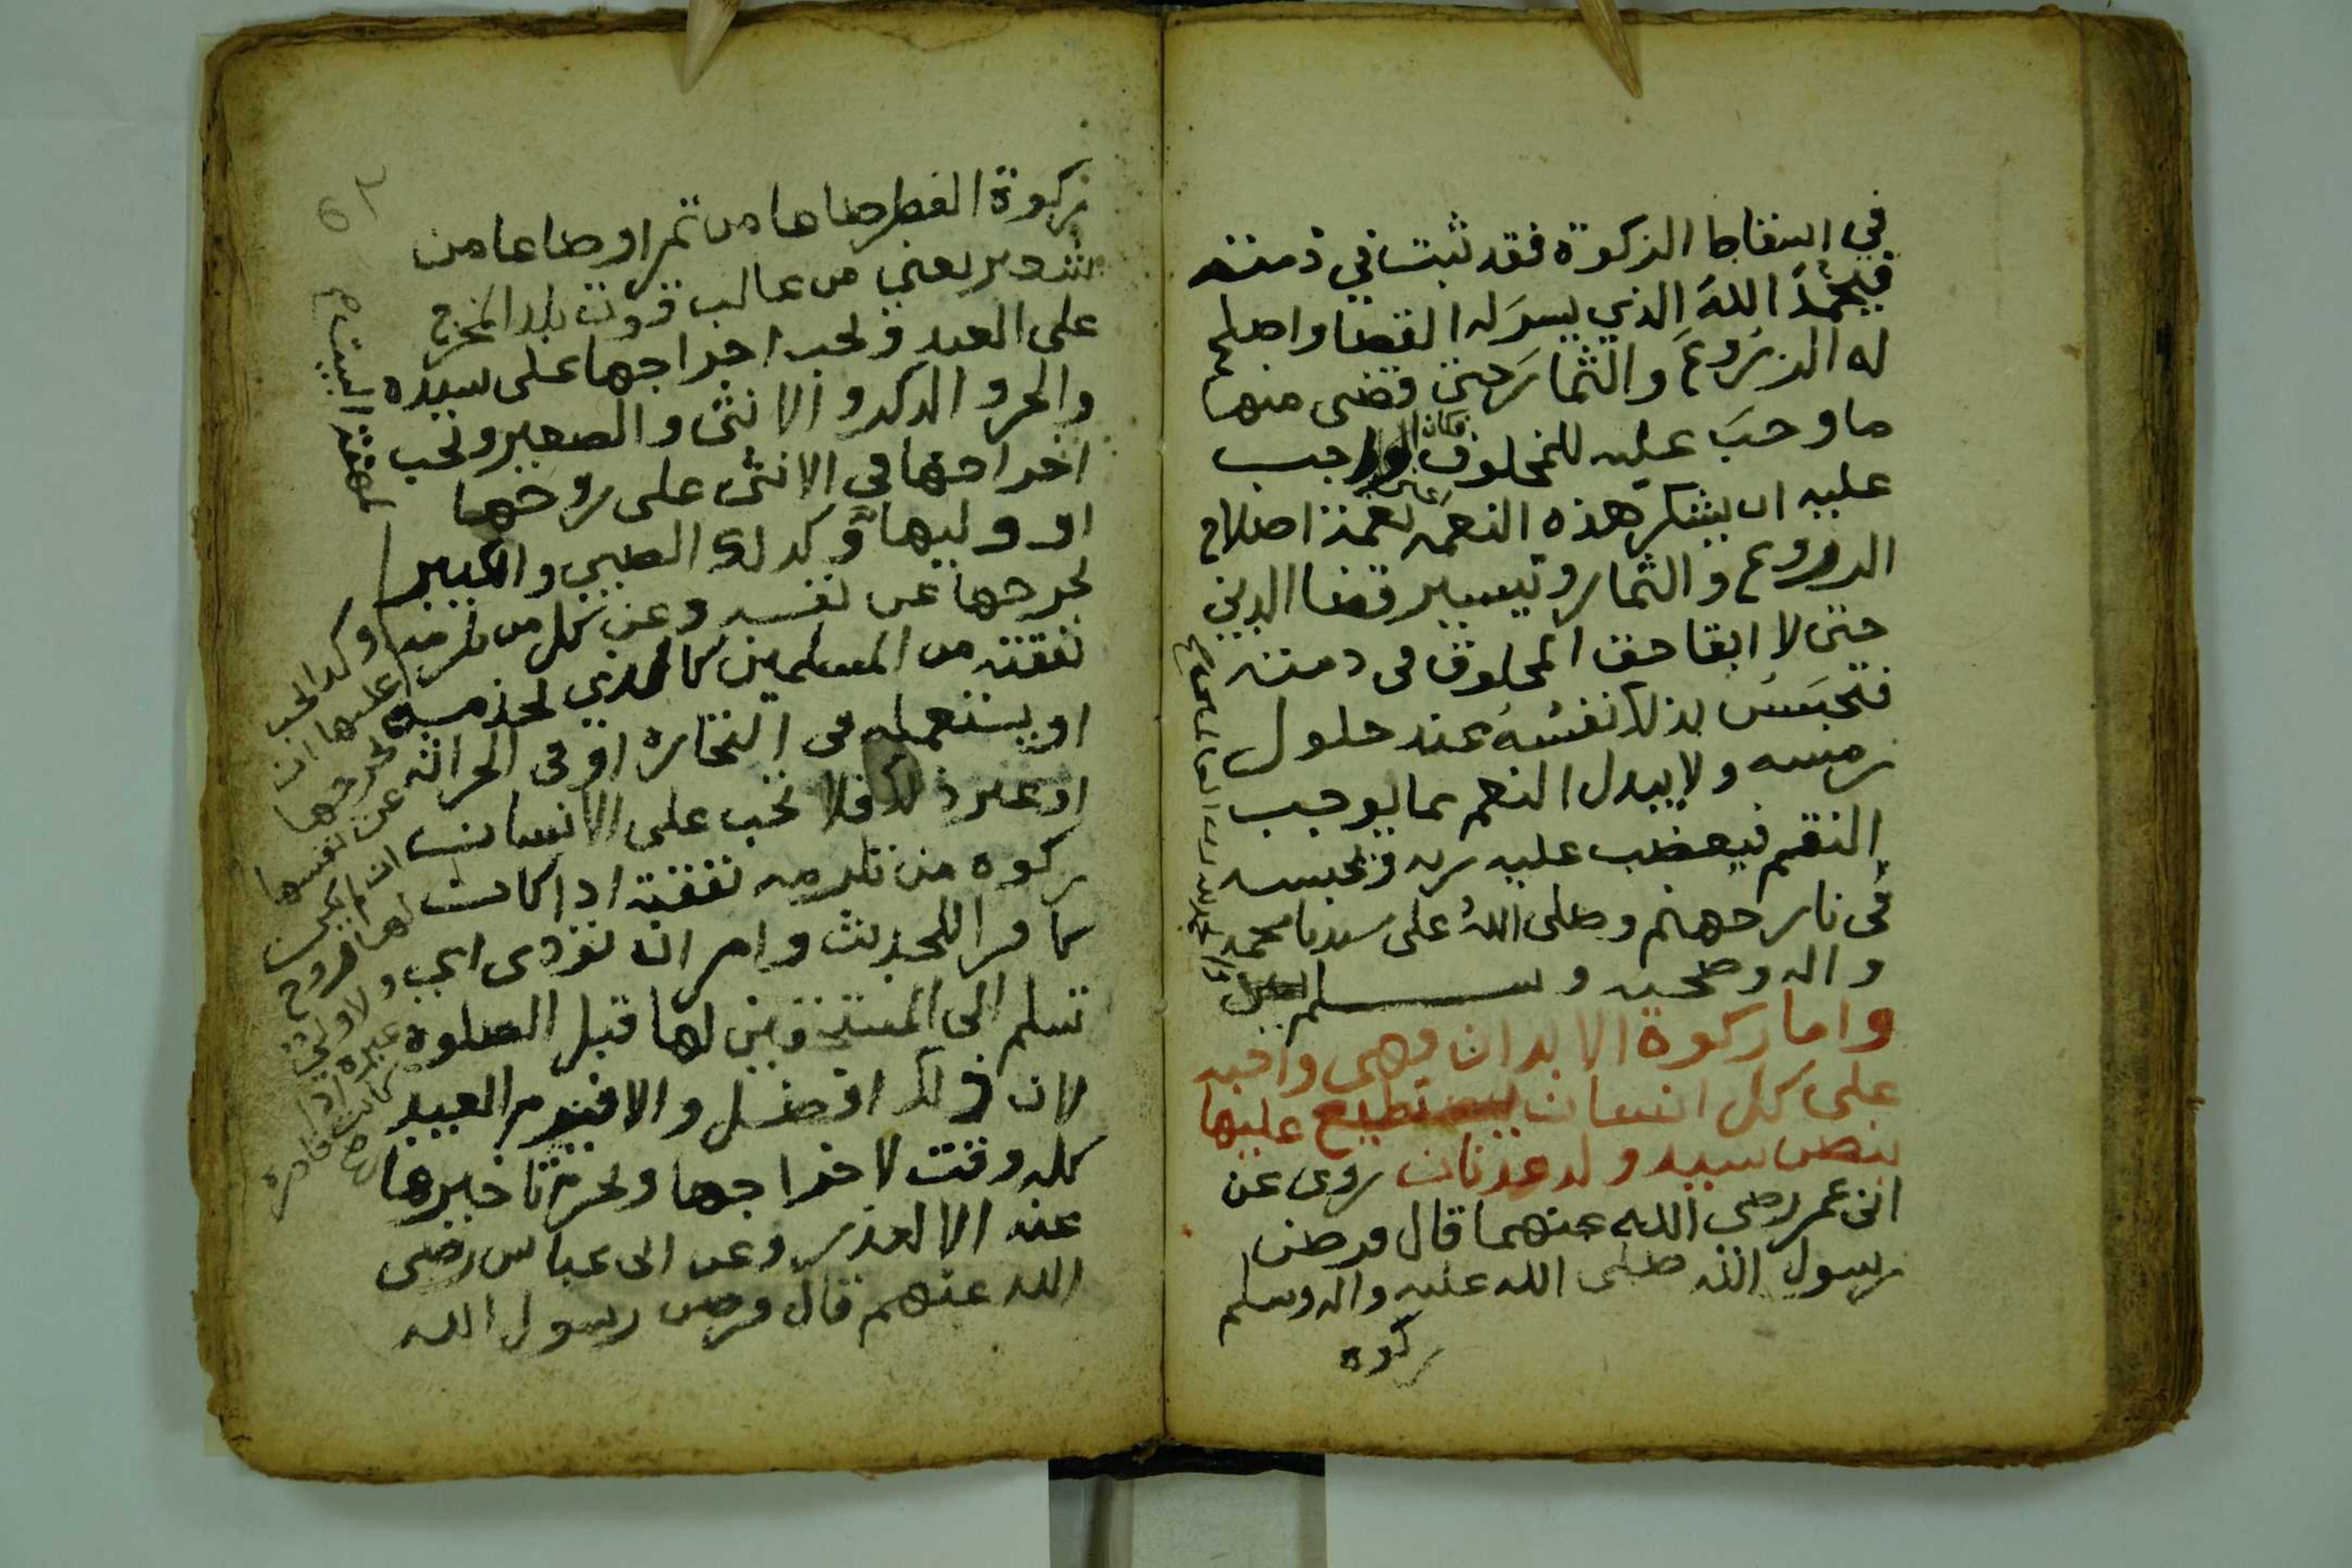 في اسقاط الزكوة فقد ثبت في ذمته
فيحمدُ اللهَ الذي يسرَ له القضا واصلح
له الزرُوعَ والثمارَ حتى قضى منها
ما وجبَ عليه للمخلوق فكان الواجب
عليه ان يشكر هذه النعمه نعمة اصلاح
الزروع والثمار وتيسير قضا الدين
حتى لا ابقا حق المخلوق في ذمته
فتحبَسُ بذلك نفسُهُ عند حلول
رمسه ولا يبدل النعم بما يوجب
النقم فيغضب عليه ربه ويحبسه
في نار جهنم وصلى اللهُ على سيدنا محمد
واله وصحبه وسلم
والحمد لله رب العالمين
واما زكوة الابدان فهي واجبه
على كل انسان يستطيع عليها
بنص سيد ولد عدنان روى عن
ابن عمر رضي الله عنهما قال فرض
رسول الله صلى الله عليه واله وسلم
زكوه
زكوة الفطر صاعا من تمر او صاعا من
شعير يعني من غالب قوت بلد المخرج
على العبد ويجب اخراجها على سيده
والحر والذكر والانثى والصغير وتجب
اخراجها في الانثى على زوجها
او وليها وكذلك الصبي والكبير
يخرجها عن نفسه وعن كل من تلزمه
نفقته من المسلمين كالذي يخدمه
او يستعمله في التجارة او في الحراثه
او غير ذلك فلا تجب على الانسان
زكوه من تلزمه نفقته اذا كانت
كافرا للحديث وامر ان تؤدى اي
تسلم الى المستحقين لها قبل الصلوة
لان ذلك افضل والا فيوم العيد
كله وقت لاخراجها ويحرم تاخيرها
عنه الا لعذر وعن ابن عباس رضي
الله عنهم قال فرض رسول الله
وكذا يجب
عليها ان
تخرجها
عن نفسها
ان لم يكن
لها زوج
ولا ولي
غيره اذا
كانت قادرة
صح